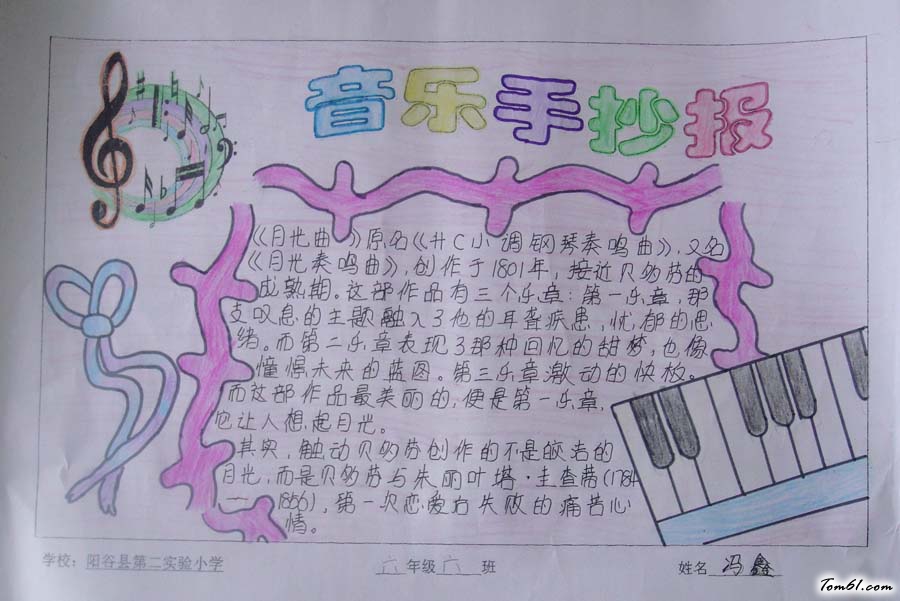 音乐手抄报
《月光曲》原名《升C小调钢琴奏鸣曲》，又名
《月光奏鸣曲》，创作于1801年，接近贝多芬的
成熟期。这部作品有三个乐章：第一乐章，那
支叹息的主题融入了他的耳聋疾患，忧郁的思
绪。而第二乐章表现了那种回忆的甜梦，也像
憧憬未来的蓝图。第三乐章激动的快板。
而这部作品最美丽的，便是第一乐章，
它让人想起月光。
其实，触动贝多芬创作的不是皎洁的
月光，而是贝多芬与朱丽叶塔·圭查蒂(1784
—1856)，第一次恋爱后失败的痛苦心
情。
学校：阳谷县第二实验小学
六年级六班
姓名 冯鑫
Tom61.com